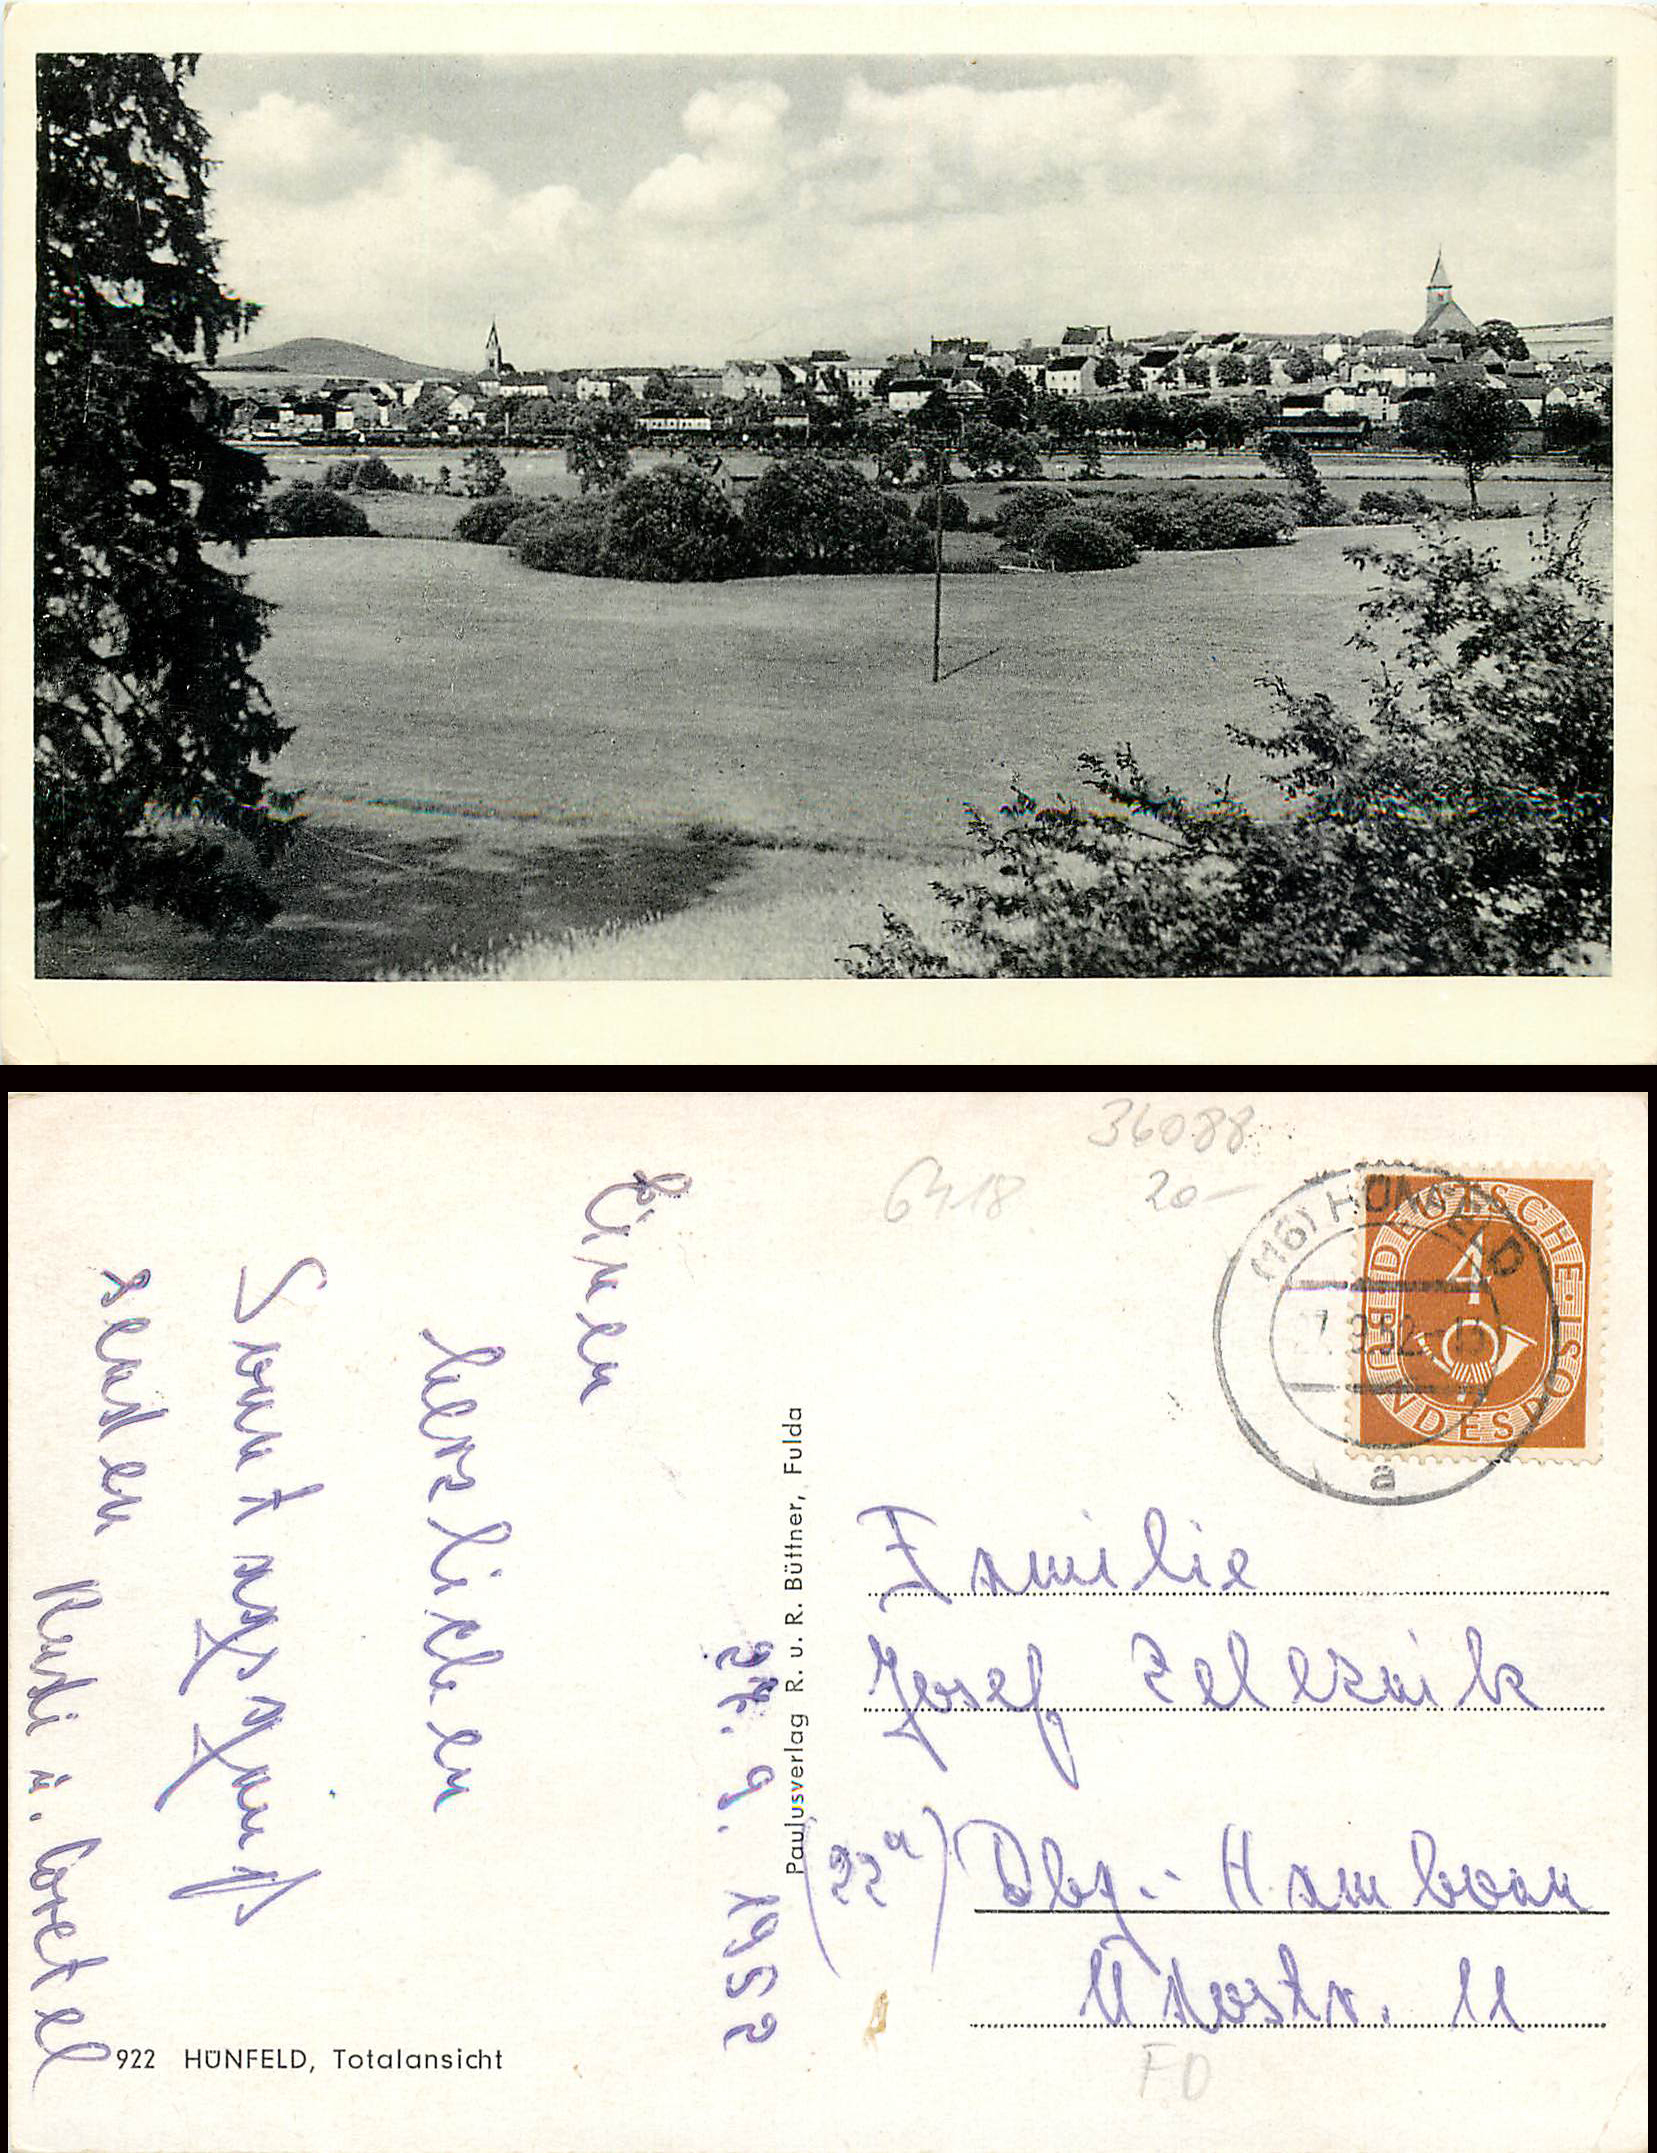 36088
6418
20-
(16) HÜNFELD
7.9.52-11
a
DEUTSCHE BUNDESPOST
4
27. 9. 1952
Einen
herzlichen
Sonntagsgruß
senden
Rudi u. Gretel
Paulusverlag R. u. R. Büttner, Fulda
Familie
Josef Zeleznik
(22a) Dbg.- Hamborn
str. 11
922 HÜNFELD, Totalansicht
FD